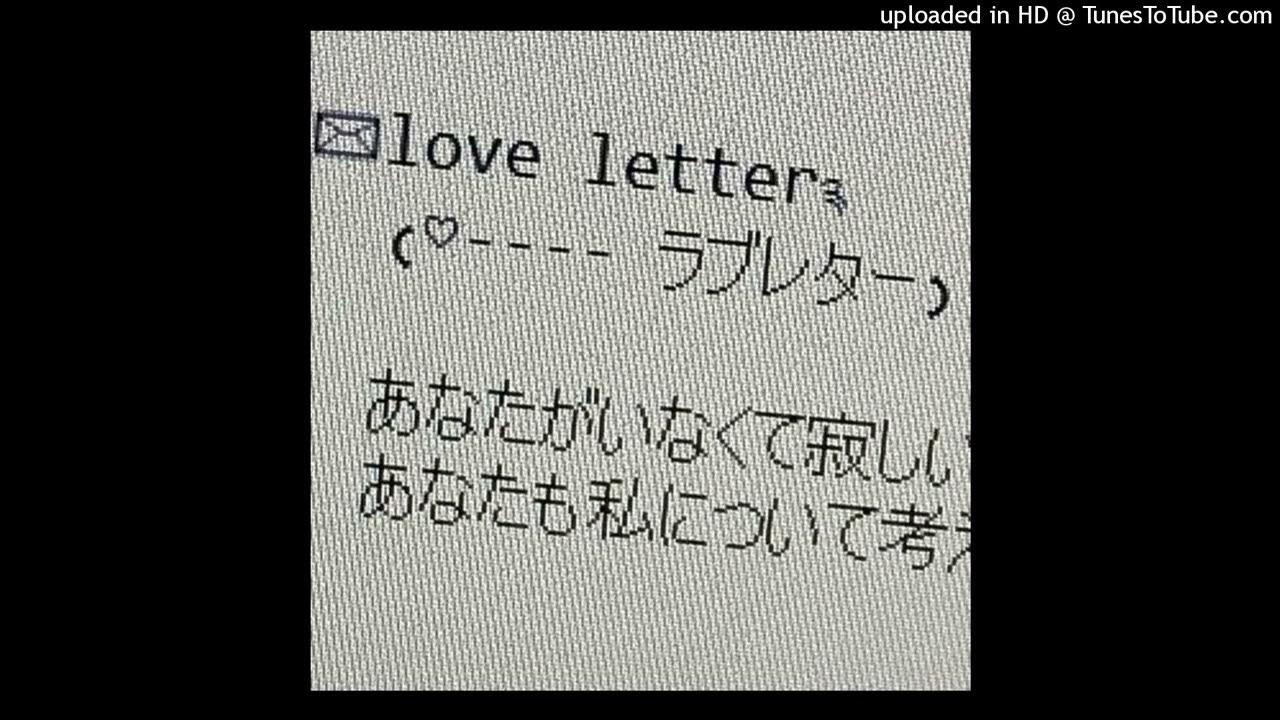 uploaded in HD @ TunesToTube.com
✉love letter
(♡---- ラブレター)
あなたがいなくて寂しい
あなたも私について考え